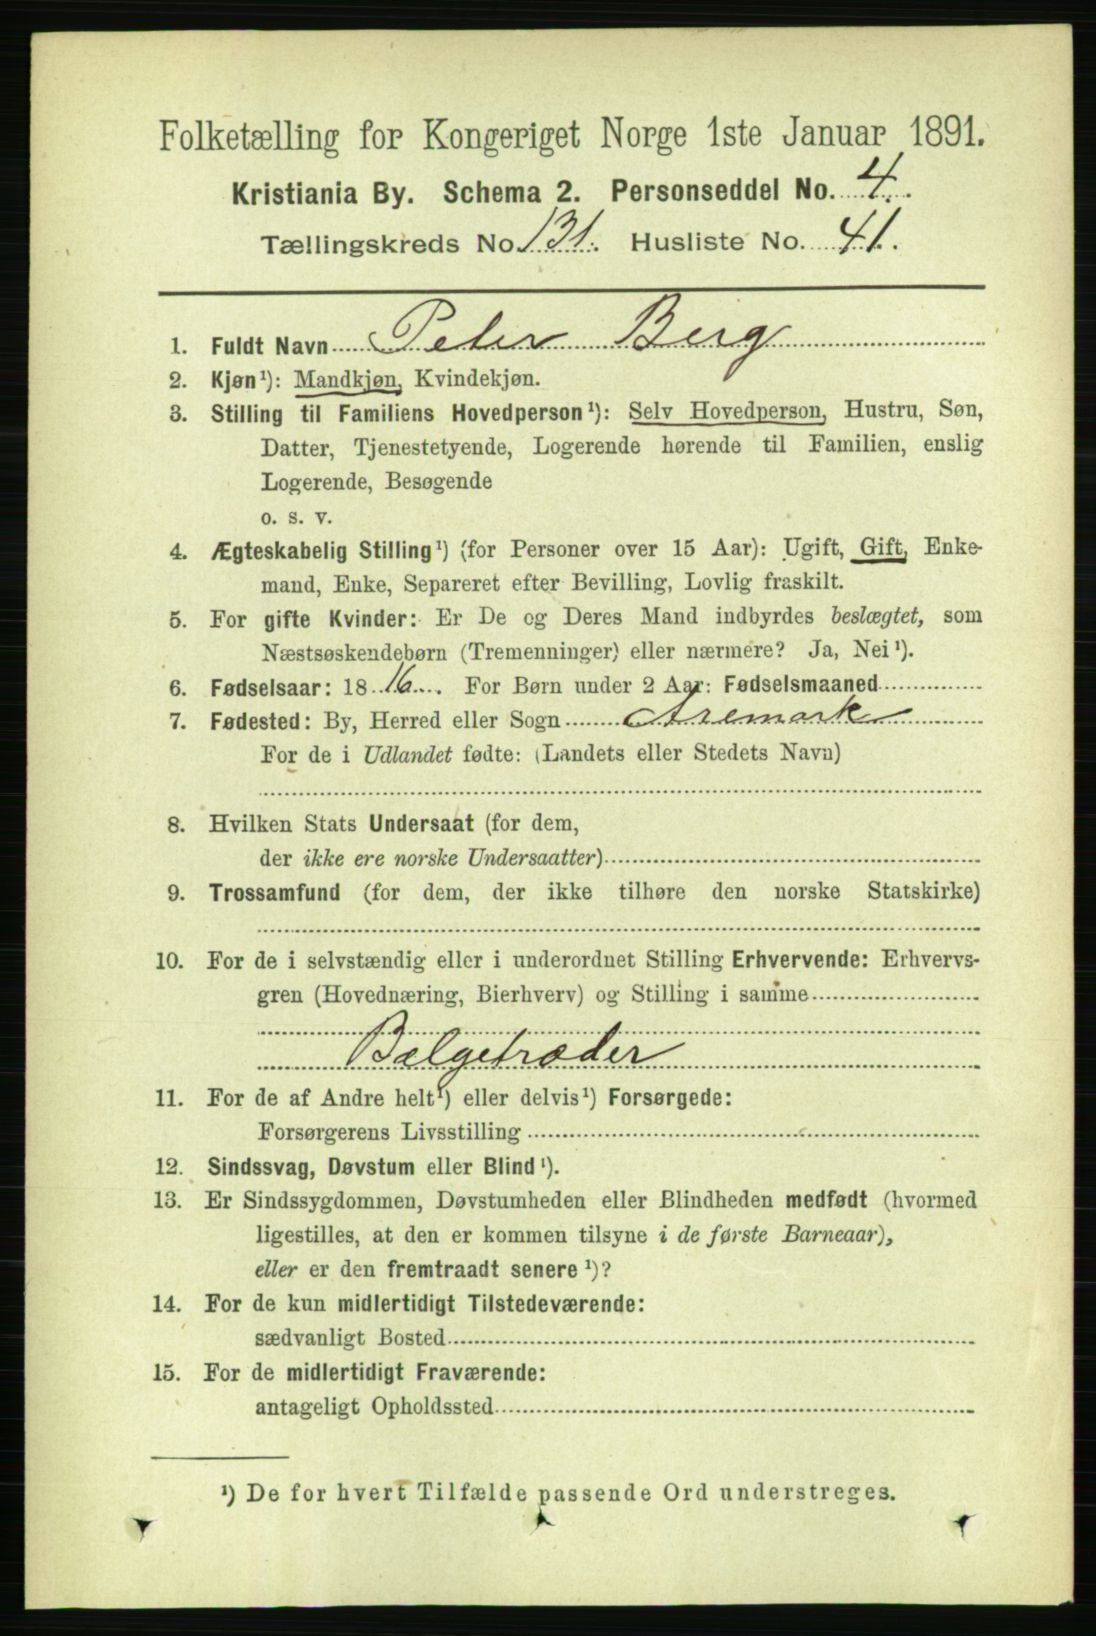 Folketælling for Kongeriget Norge 1ste Januar 1891.
Kristiania By. Schema 2. Personseddel No. 4.
Tællingskreds No. 131. Husliste No. 41.
1. Fuldt Navn Peter Berg
2. Kjøn¹): Mandkjøn, Kvindekjøn.
3. Stilling til Familiens Hovedperson¹): Selv Hovedperson, Hustru, Søn,
Datter, Tjenestetyende, Logerende hørende til Familien, enslig
Logerende, Besøgende
o. s. v.
4. Ægteskabelig Stilling¹) (for Personer over 15 Aar): Ugift, Gift, Enke-
mand, Enke, Separeret efter Bevilling, Lovlig fraskilt.
5. For gifte Kvinder: Er De og Deres Mand indbyrdes beslægtet, som
Næstsøskendebørn (Tremenninger) eller nærmere? Ja, Nei¹).
6. Fødselsaar: 1816. For Børn under 2 Aar: Fødselsmaaned
7. Fødested: By, Herred eller Sogn Aremark
For de i Udlandet fødte: (Landets eller Stedets Navn)
8. Hvilken Stats Undersaat (for dem,
der ikke ere norske Undersaatter)
9. Trossamfund (for dem, der ikke tilhøre den norske Statskirke)
10. For de i selvstændig eller i underordnet Stilling Erhvervende: Erhvervs-
gren (Hovednæring, Bierhverv) og Stilling i samme
Bælgetræder
11. For de af Andre helt¹) eller delvis¹) Forsørgede:
Forsørgerens Livsstilling
12. Sindssvag, Døvstum eller Blind¹).
13. Er Sindssygdommen, Døvstumheden eller Blindheden medfødt (hvormed
ligestilles, at den er kommen tilsyne i de første Barneaar),
eller er den fremtraadt senere¹)?
14. For de kun midlertidigt Tilstedeværende:
sædvanligt Bosted
15. For de midlertidigt Fraværende:
antageligt Opholdssted
¹) De for hvert Tilfælde passende Ord understreges.